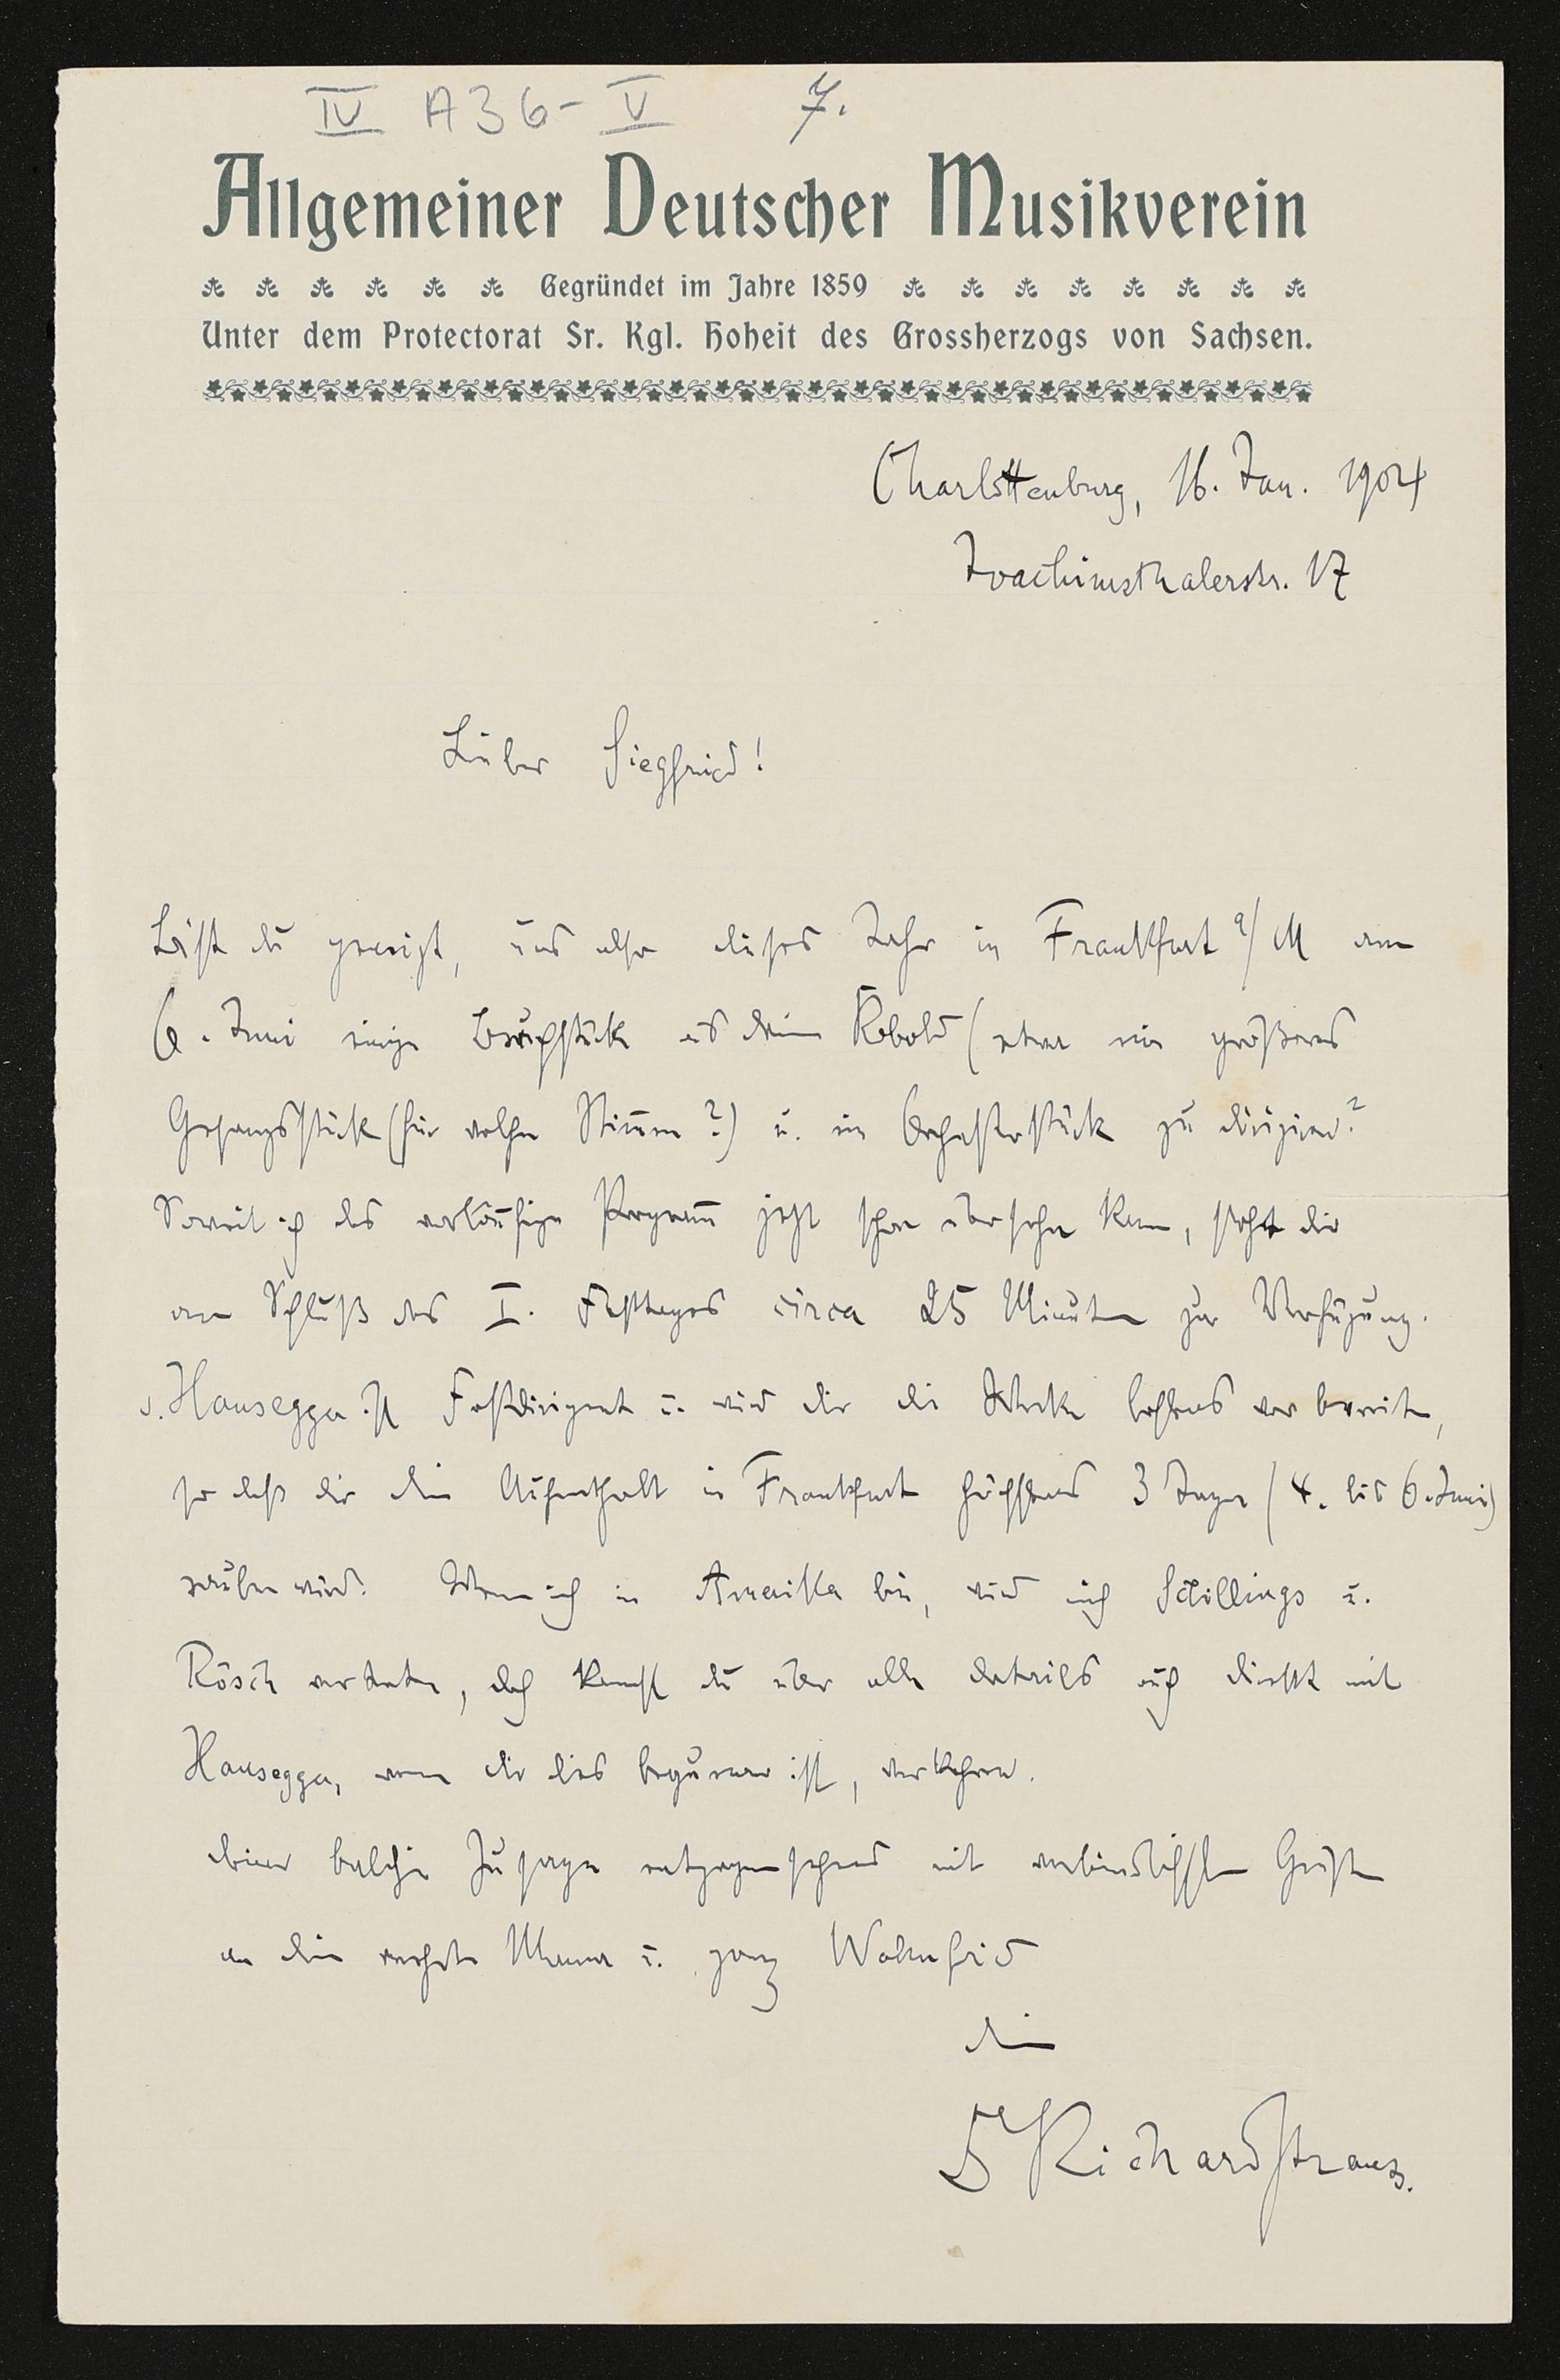 IV A36-V 7.
Allgemeiner Deutscher Musikverein
Gegründet im Jahre 1859
Unter dem Protectorat Sr. Kgl. Hoheit des Grossherzogs von Sachsen.
Charlottenburg, 16. Jan. 1904
Joachimsthalerstr. 17
Lieber Siegfried!
Bist du geneigt, uns also dieses Jahr in Frankfurt a/M am
6. Juni einige Bruchstücke aus deinem Kobold (etwa ein größeres
Gesangsstück (für welche Stimme?) u. ein Orchesterstück zu dirigieren?
Soweit ich das vorläufige Programm jetzt schon übersehen kann, steht dir
am Schluß des I. Festtages circa 25 Minuten zur Verfügung.
v. Hausegger ist Festdirigent u. wird dir die Werke bestens vorbereiten,
so daß dir dein Aufenthalt in Frankfurt höchstens 3 Tage (4. bis 6. Juni)
rauben wird. Wenn ich in Amerika bin, wird mich Schillings u.
Rösch vertreten, doch kannst du über alle details auch direkt mit
Hausegger, wenn dir dies bequemer ist, verkehren.
deiner baldigen Zusage entgegensehend mit verbindlichsten Grüßen
an deine verehrte Mama u. ganz Wahnfried
dein
Dr Richard Strauss.